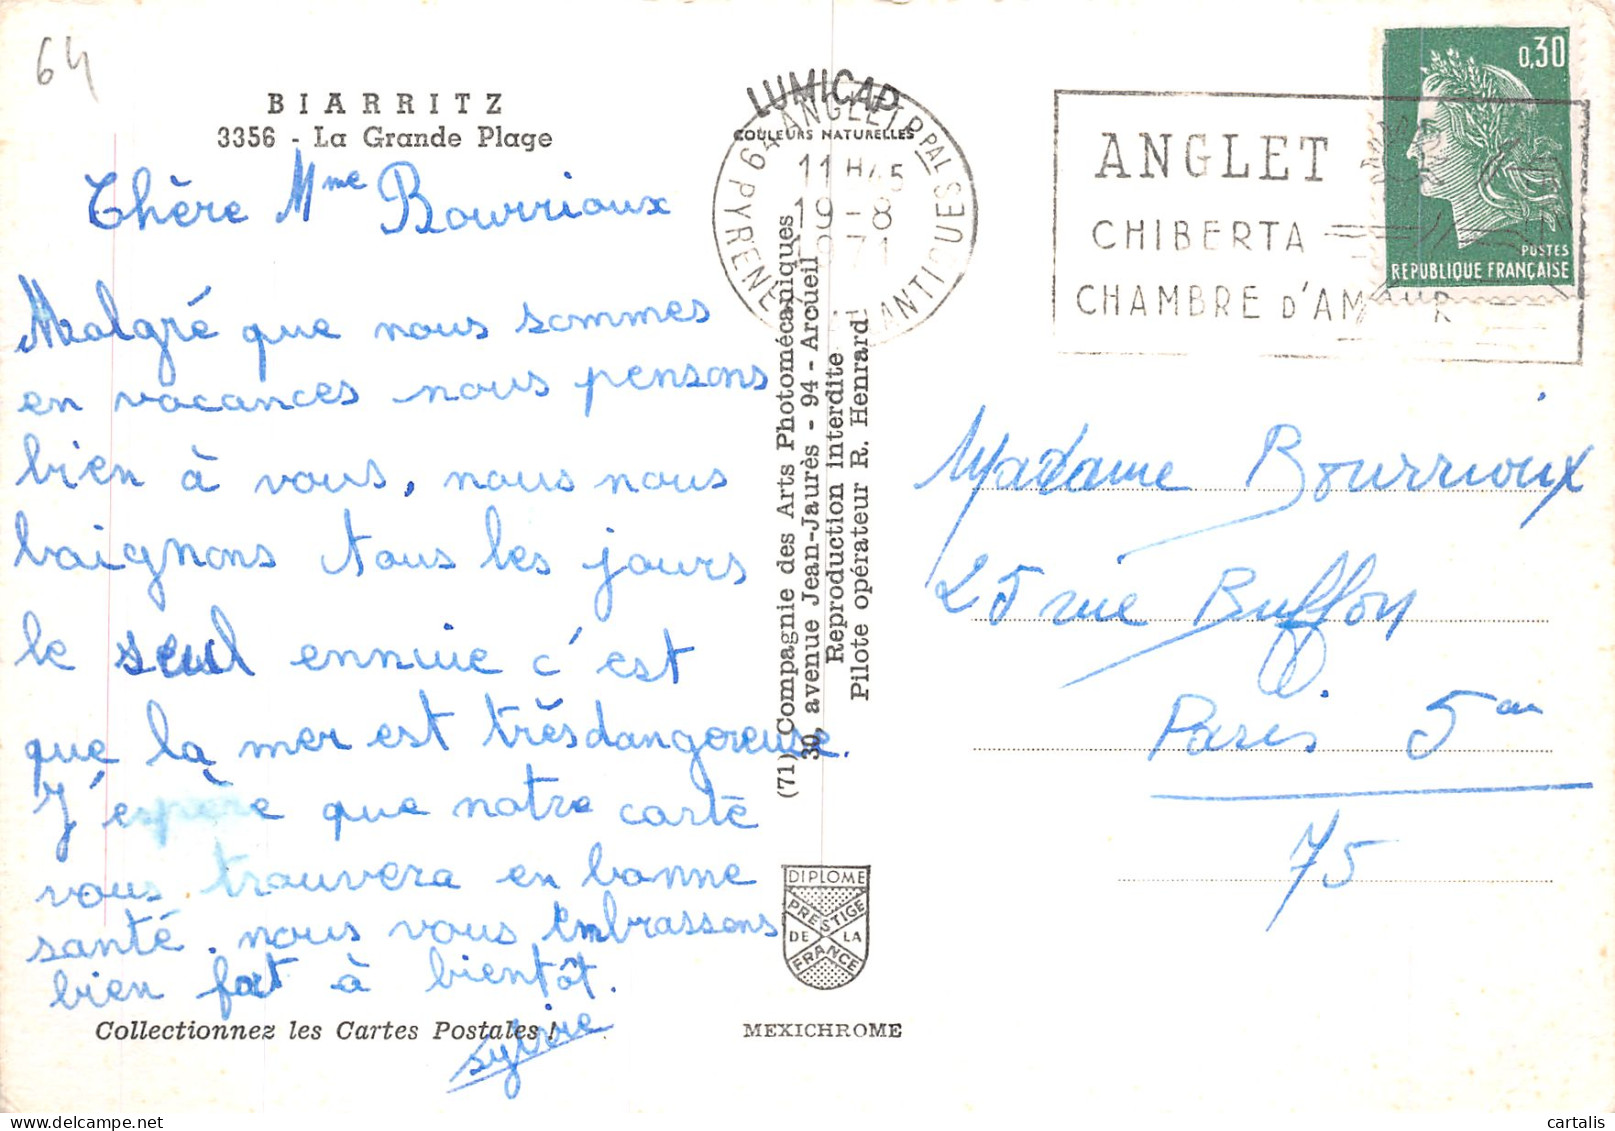 64
BIARRITZ
3356 - La Grande Plage
Chère Mme Bourrioux
Malgré que nous sommes
en vacances nous pensons
bien à vous, nous nous
baignons tous les jours
le seul ennuie c'est
que la mer est très dangereuse.
J'espère que notre carte
vous trouvera en bonne
santé. nous vous embrassons
bien fort à bientôt.
Sylvie
Collectionnez les Cartes Postales !
LUMICAP
COULEURS NATURELLES
64 ANGLET PPAL
11 H 45
19 - 8
1971
PYRENEES ATLANTIQUES
(71) Compagnie des Arts Photomécaniques
30, avenue Jean-Jaurès - 94 - Arcueil
Reproduction interdite
Pilote opérateur R. Henrard
DIPLOME
PRESTIGE
DE LA
FRANCE
MEXICHROME
ANGLET
CHIBERTA
CHAMBRE D'AMOUR
0,30
POSTES
REPUBLIQUE FRANÇAISE
Madame Bourrioux
25 rue Buffon
Paris 5em
75
cartalis